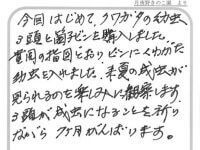 月夜野きのこ園 より
今回はじめて、クワガタの幼虫
3頭と菌糸ビンを購入しました。
貴園の指図どおりビンにくわがた
幼虫を入れました。来夏の成虫が
見られるのを楽しみに観察します。
3頭が成虫になることを祈り
ながら 7ヶ月がんばります。